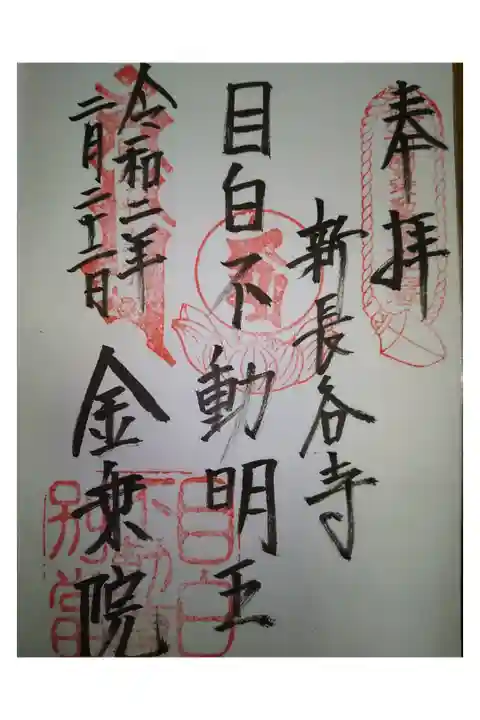 奉拝
新長谷寺
目白不動明王
令和二年
二月二十二日
金乗院
目白
不動
別當